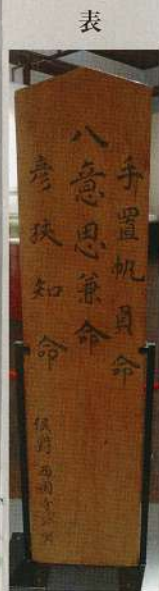 表
手置帆負命
八意思兼命
彦狭知命